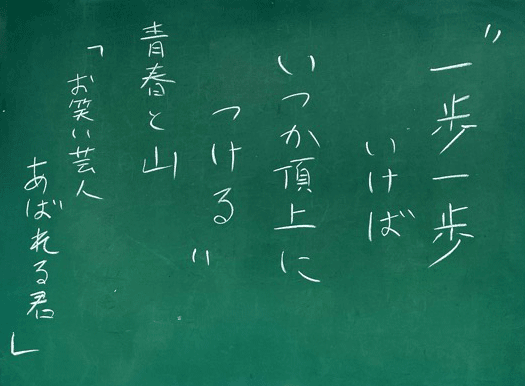 "一歩一歩
いけば
いつか頂上に
つける"
青春と山
「お笑い芸人
あばれる君」